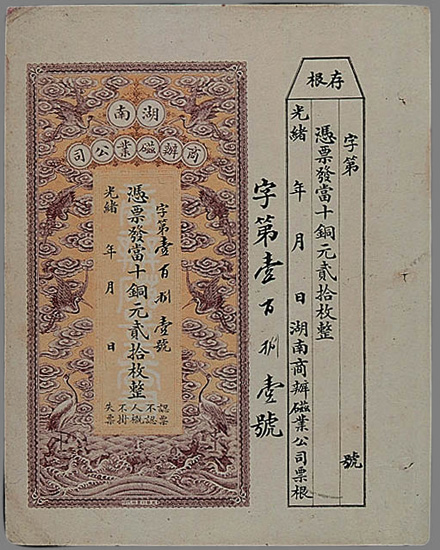 存根
字第 號
憑票發當十銅元貳拾枚整
光緒 年 月 日 湖南商辦磁業公司票根
字第壹百捌壹號
湖南
商辦磁業公司
字第壹百捌壹號
憑票發當十銅元貳拾枚整
光緒 年 月 日
認票不認人概不掛失票